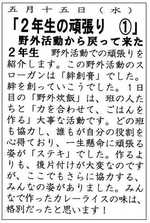 五月十五日（水）
「２年生の頑張り　①」
野外活動から戻って来た
２年生　野外活動での頑張りを
紹介します。この野外活動のス
ローガンは「絆創膏」でした。
絆を創っていこうでした。１日
目の「野外炊飯」は、班の人た
ちと「力を合わせて、ごはんを
作る」大事な活動です。どの班
も協力し、誰もが自分の役割を
心得ており、一生懸命に頑張る
姿が「ステキ」でした。作るよ
りも、後片付けが大変なのです
が、ここでもさらに協力する、
みんなの姿がありました。みん
なで作ったカレーライスの味は、
格別だったと思います！